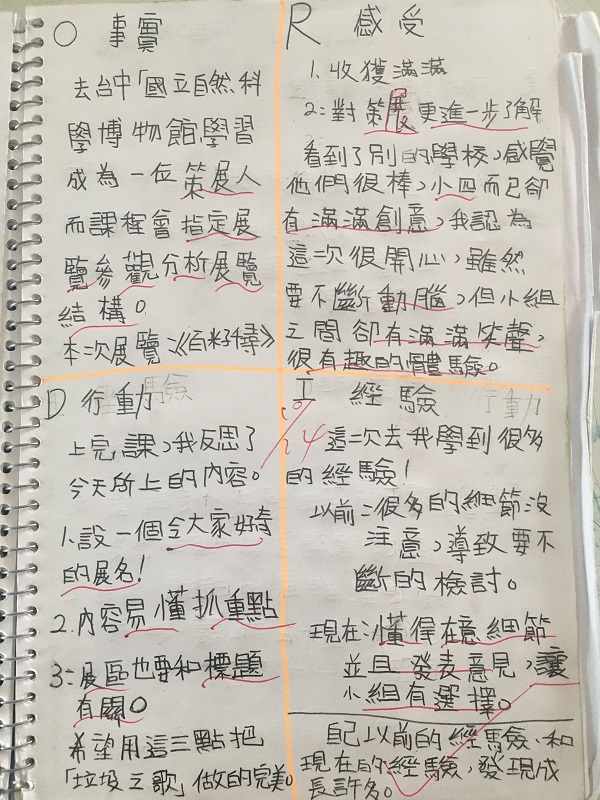 O 事實
去台中「國立自然科
學博物館學習
成為一位策展人
而課程會指定展
覽參觀分析展覽
結構。
本次展覽:《百米尋》
R 感受
1. 收獲滿滿
2: 對策展更進一步了解
看到了別的學校,感覺
他們很棒,小四而已卻
有滿滿創意,我認為
這次很開心,雖然
要不斷動腦,但小組
之間卻有滿滿笑聲,
很有趣的體驗。
D 行動
上完課,我反思了
今天所上的內容。
1. 設一個令大家好奇
的展名!
2. 內容易懂抓重點
3: 展區也要和標題
有關。
希望用這三點把
「垃圾之歌」做的完美。
I 經驗 行動
這二次去我學到很多
的經驗!
以前:很多的細節沒
注意,導致要不
斷的檢討。
現在:懂得在意細節
並且發表意見,讓
小組有選擇。
自己以前的經驗、和
現在的經驗,發現成
長許多。